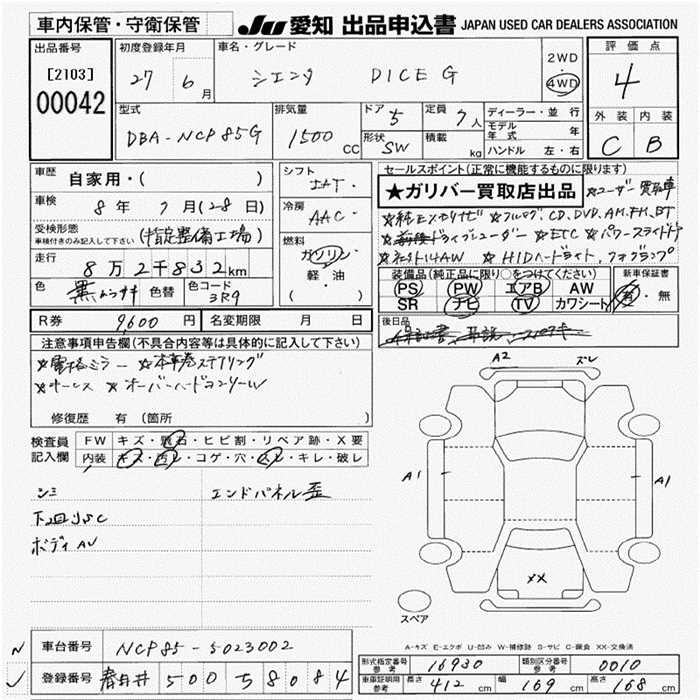 車内保管・守衛保管
JU 愛知 出品申込書 JAPAN USED CAR DEALERS ASSOCIATION
出品番号
[2103]
00042
初度登録年月
27 6月
車名・グレード
シエンタ DICE G
2WD
4WD
評価点
4
外装 内装
C B
型式
DBA-NCP85G
排気量
1500 CC
ドア 5
形状 SW
定員 7人
積載 kg
ディーラー・並行
モデル年式 年
ハンドル 左・右
車歴 自家用・( )
車検 8年 7月(28日)
受検形態
車検付きのみ記入して下さい (指定整備工場)
走行 8万2千832km
色 黒ムラサキ 色替 色コード 3R9
シフト
IAT
冷房
AAC
燃料
ガソリン
軽・油
( )
セールスポイント(正常に機能するものに限ります)
★ガリバー買取店出品 ☆ユーザー買取車
☆ETC ☆パワースライドドア
☆HIDヘッドライト, フォグランプ
装備品(純正品に限り○をつけてください)
PS PW エアB AW
SR ナビ TV カワシート
新車保証書
有・無
R券 9,600 円 名変期限 月 日
後日品
注意事項申告欄(不具合内容等は具体的に記入して下さい)
☆電格ミラー ☆本革巻ステアリング
☆キーレス ☆オーバーヘッドコンソール
修復歴 有(箇所
検査員
記入欄
FW キズ・飛石・ヒビ割・リペア跡・X要
内装 キズ・汚レ・コゲ・穴・スレ・キレ・破レ
シミ エンドパネル歪
下回りSC
ボディAU
A2 ズレ
A1
A1
XX
スペア
A-キズ E-エクボ U-凹み W-補修跡 S-サビ C-腐食 XX-交換済
車台番号 NCP85-5023002
登録番号 春日井 500 ち 8084
形式指定番号 参考 16930 類別区分番号 参考 0010
車庫証明用 参考 長さ 412 cm 幅 169 cm 高さ 168 cm